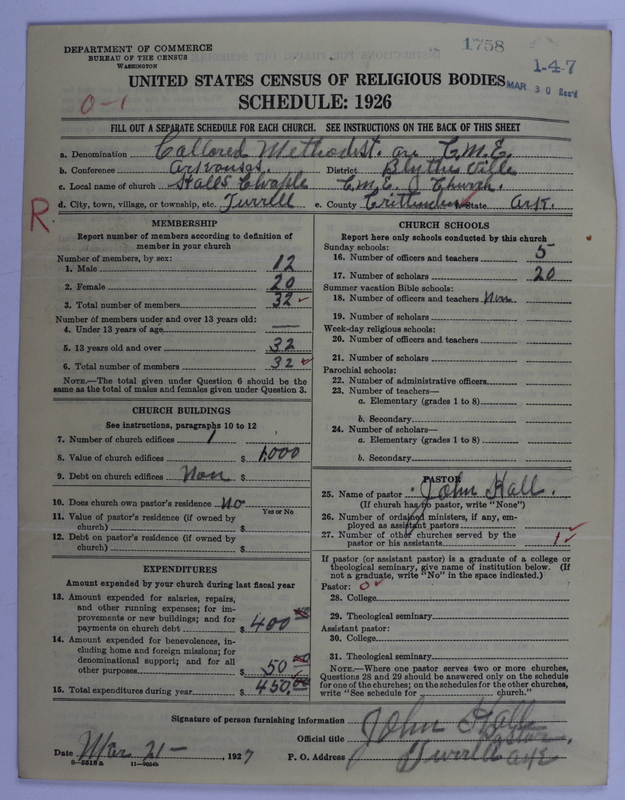 DEPARTMENT OF COMMERCE
BUREAU OF THE CENSUS
WASHINGTON
1758
1-4-7
MAR 30 Rec'd
UNITED STATES CENSUS OF RELIGIOUS BODIES
0-1
SCHEDULE: 1926
FILL OUT A SEPARATE SCHEDULE FOR EACH CHURCH. SEE INSTRUCTIONS ON THE BACK OF THIS SHEET
a. Denomination Collored Methodist. or C.M.E.
b. Conference Arkansas. District Blythe Ville
c. Local name of church Halls Chaple C.M.E. Church.
d. City, town, village, or township, etc. Turrell e. County Crittenden State Ark.
R.
MEMBERSHIP
Report number of members according to definition of
member in your church
Number of members, by sex:
1. Male 12
2. Female 20
3. Total number of members 32 ✓
Number of members under and over 13 years old:
4. Under 13 years of age —
5. 13 years old and over 32
6. Total number of members 32 ✓
NOTE.—The total given under Question 6 should be the
same as the total of males and females given under Question 3.
CHURCH BUILDINGS
See instructions, paragraphs 10 to 12
7. Number of church edifices 1
8. Value of church edifices $ 1,000
9. Debt on church edifices Non $
10. Does church own pastor's residence No
Yes or No
11. Value of pastor's residence (if owned by
church) $
12. Debt on pastor's residence (if owned by
church) $
EXPENDITURES
Amount expended by your church during last fiscal year
13. Amount expended for salaries, repairs,
and other running expenses; for im-
provements or new buildings; and for
payments on church debt $ 400 00
14. Amount expended for benevolences, in-
cluding home and foreign missions; for
denominational support; and for all
other purposes $ 50 00
15. Total expenditures during year $ 450.00
CHURCH SCHOOLS
Report here only schools conducted by this church
Sunday schools:
16. Number of officers and teachers 5
17. Number of scholars 20
Summer vacation Bible schools:
18. Number of officers and teachers Non
19. Number of scholars
Week-day religious schools:
20. Number of officers and teachers
21. Number of scholars
Parochial schools:
22. Number of administrative officers
23. Number of teachers—
a. Elementary (grades 1 to 8)
b. Secondary
24. Number of scholars—
a. Elementary (grades 1 to 8)
b. Secondary
PASTOR
25. Name of pastor John Hall.
(If church has no pastor, write "None")
26. Number of ordained ministers, if any, em-
ployed as assistant pastors
27. Number of other churches served by the
pastor or his assistants 1 ✓
If pastor (or assistant pastor) is a graduate of a college or
theological seminary, give name of institution below. (If
not a graduate, write "No" in the space indicated.)
Pastor: 0 ✓
28. College
29. Theological seminary
Assistant pastor:
30. College
31. Theological seminary
NOTE.—Where one pastor serves two or more churches,
Questions 28 and 29 should be answered only on the schedule
for one of the churches; on the schedules for the other churches,
write "See schedule for church."
Signature of person furnishing information John Hall
Official title Pastor.
Date Mar 21 — , 1927 P. O. Address Turrell Ark
8—5518 a 11—9054b